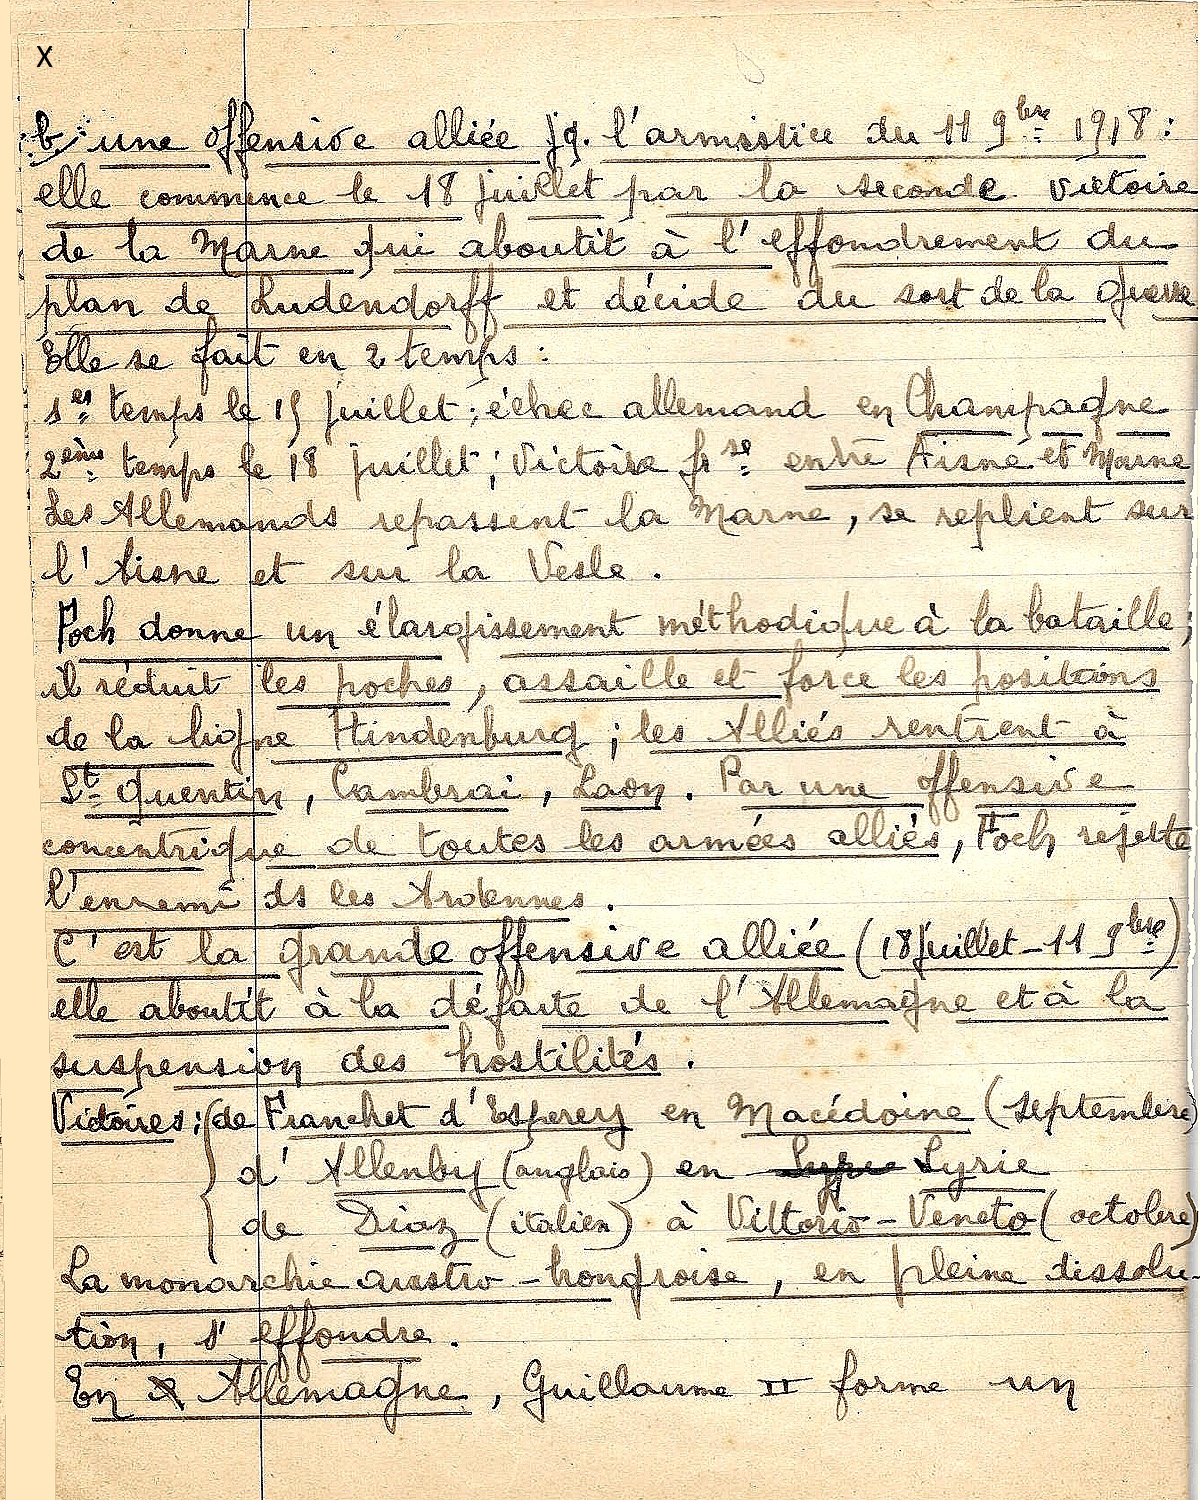 x
b/ une offensive alliée jq. l'armistice du 11 9bre 1918 :
elle commence le 18 juillet par la seconde victoire
de la Marne qui aboutit à l'effondrement du
plan de Ludendorff et décide du sort de la guerre
Elle se fait en 2 temps :
1er temps le 15 juillet : échec allemand en Champagne
2ème temps le 18 juillet : Victoire frse entre Aisne et Marne
Les Allemands repassent la Marne, se replient sur
l'Aisne et sur la Vesle .
Foch donne un élargissement méthodique à la bataille ;
il réduit les poches, assaille et force les positions
de la ligne Hindenburg ; les Alliés rentrent à
St Quentin, Cambrai, Laon. Par une offensive
concentrique de toutes les armées alliés, Foch rejette
l'ennemi ds les Ardennes .
C'est la grande offensive alliée (18 juillet - 11 9bre)
elle aboutit à la défaite de l'Allemagne et à la
suspension des hostilités .
Victoires : { de Franchet d'Esperey en Macédoine (septembre)
d' Allenby (anglais) en Syrie
de Diaz (italien) à Vittorio - Veneto (octobre)
La monarchie austro - hongroise, en pleine dissolu-
tion, s' effondre .
En Allemagne, Guillaume II forme un